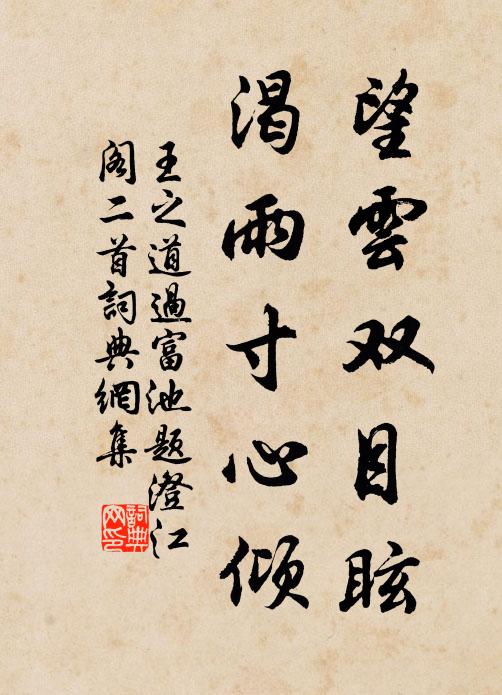 望雲双目眩
渴雨寸心倾
王之道過富池题澄江
阁二首詞典網集
詞典網印